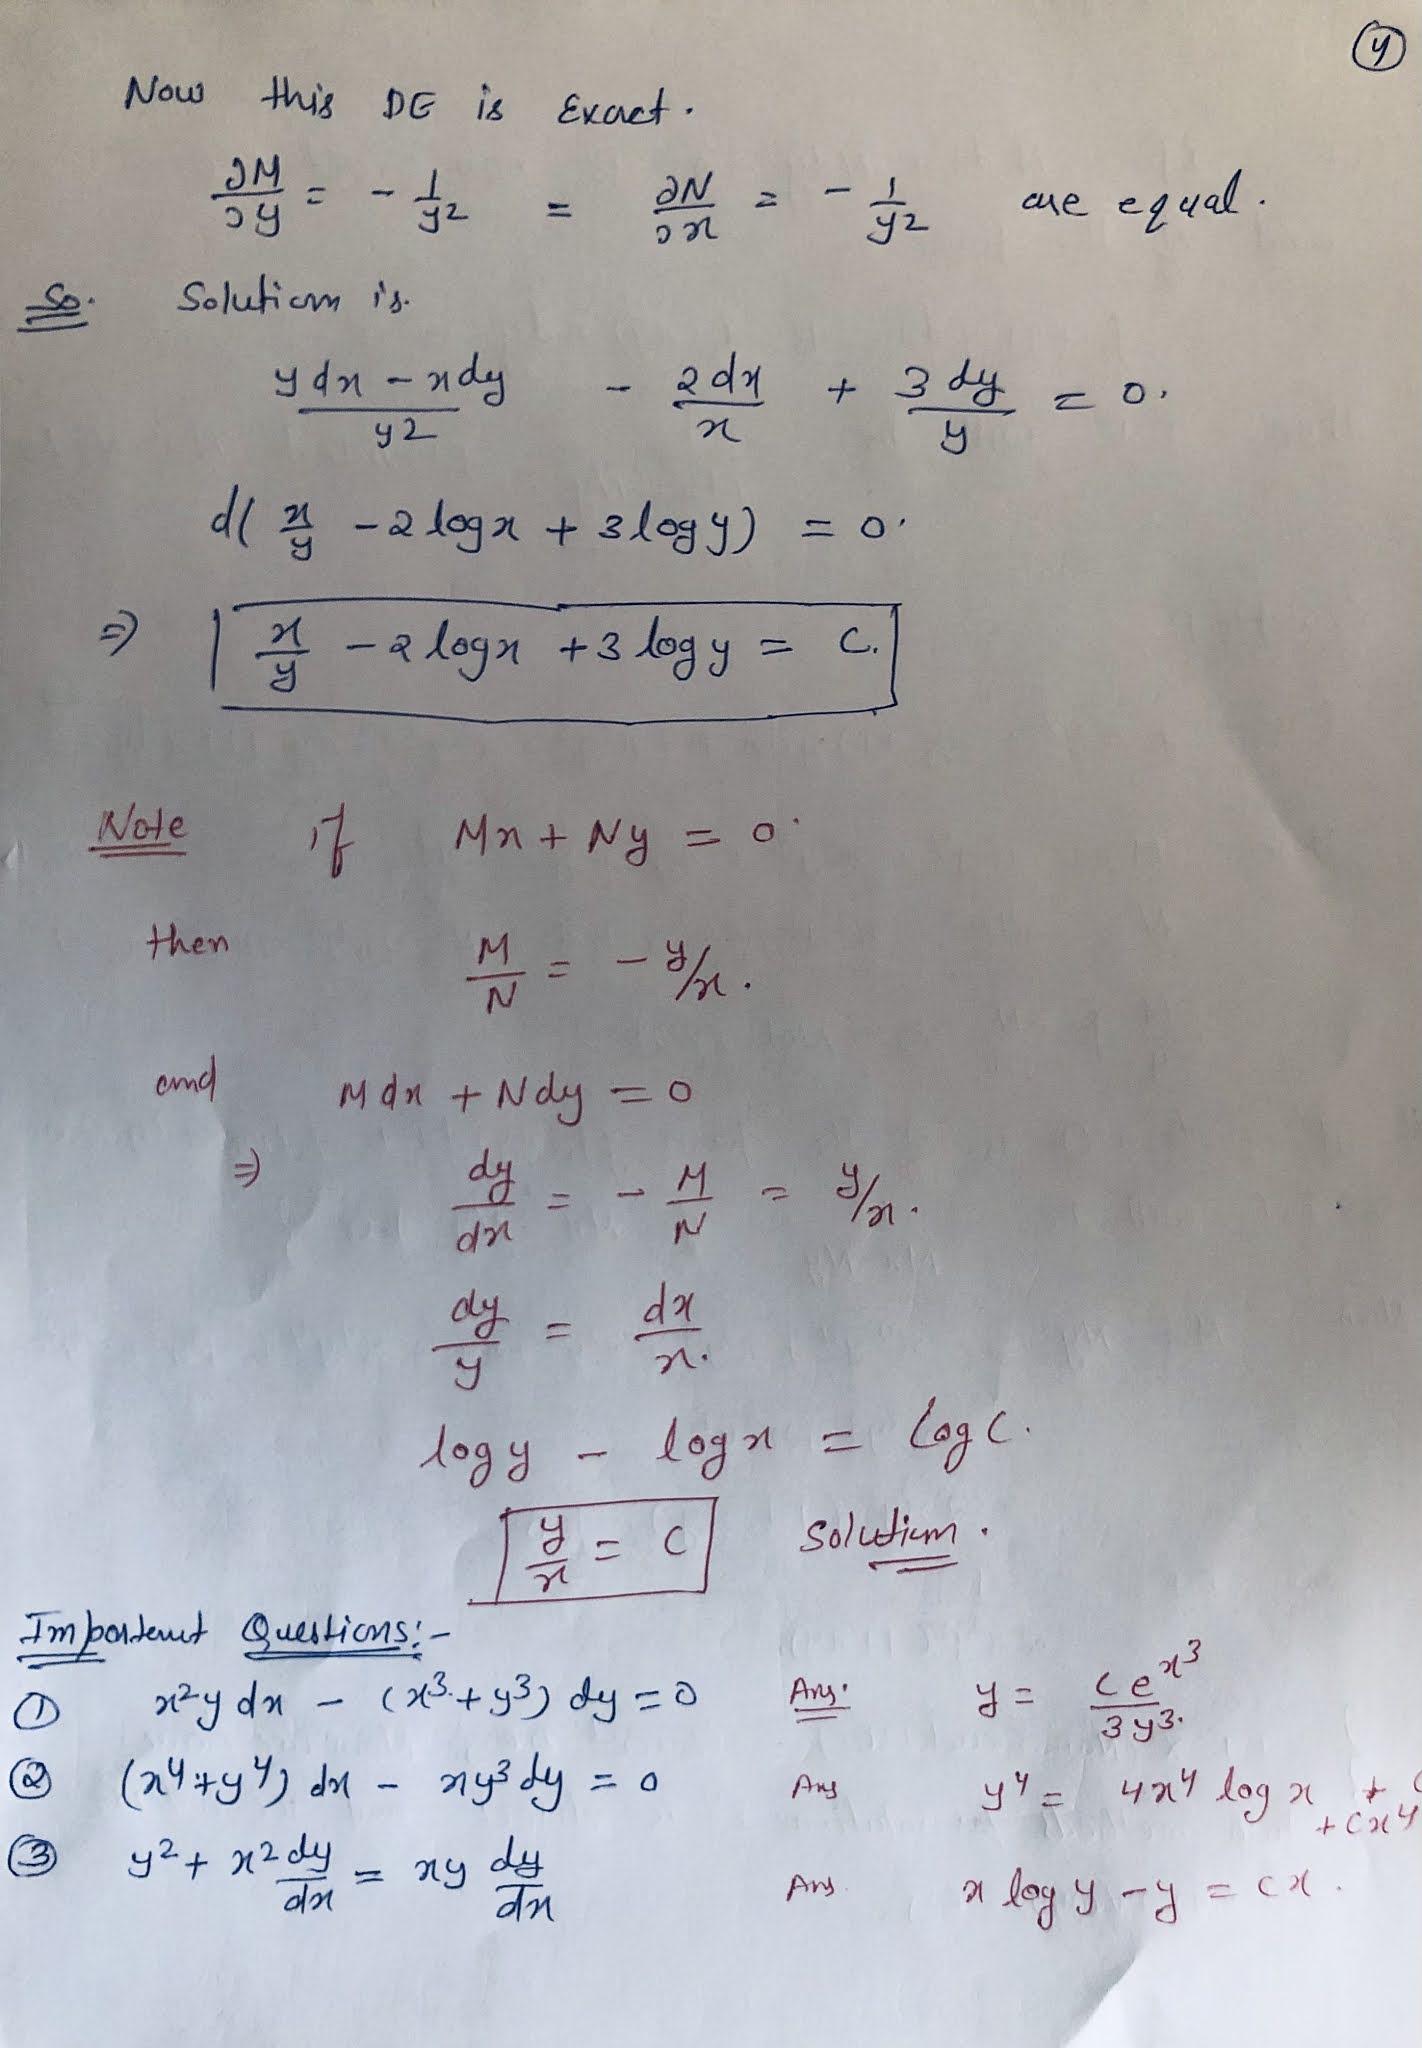 ④
Now this DE is Exact.
∂M/∂y = - 1/y² = ∂N/∂x = - 1/y² are equal.
So. Solution is.
(y dx - x dy)/y² - 2dx/x + 3dy/y = 0.
d( x/y - 2 log x + 3 log y) = 0.
⇒ x/y - 2 log x + 3 log y = C.
Note if Mx + Ny = 0.
then M/N = - y/x.
and M dx + N dy = 0
⇒ dy/dx = - M/N = y/x.
dy/y = dx/x.
log y - log x = log C.
y/x = C Solution.
Important Questions:-
① x²y dx - (x³ + y³) dy = 0 Ans: y = c e^x³/3y³.
② (x⁴ + y⁴) dx - xy³ dy = 0 Ans y⁴ = 4x⁴ log x +
+ cx⁴
③ y² + x² dy/dx = xy dy/dx Ans. x log y - y = cx.